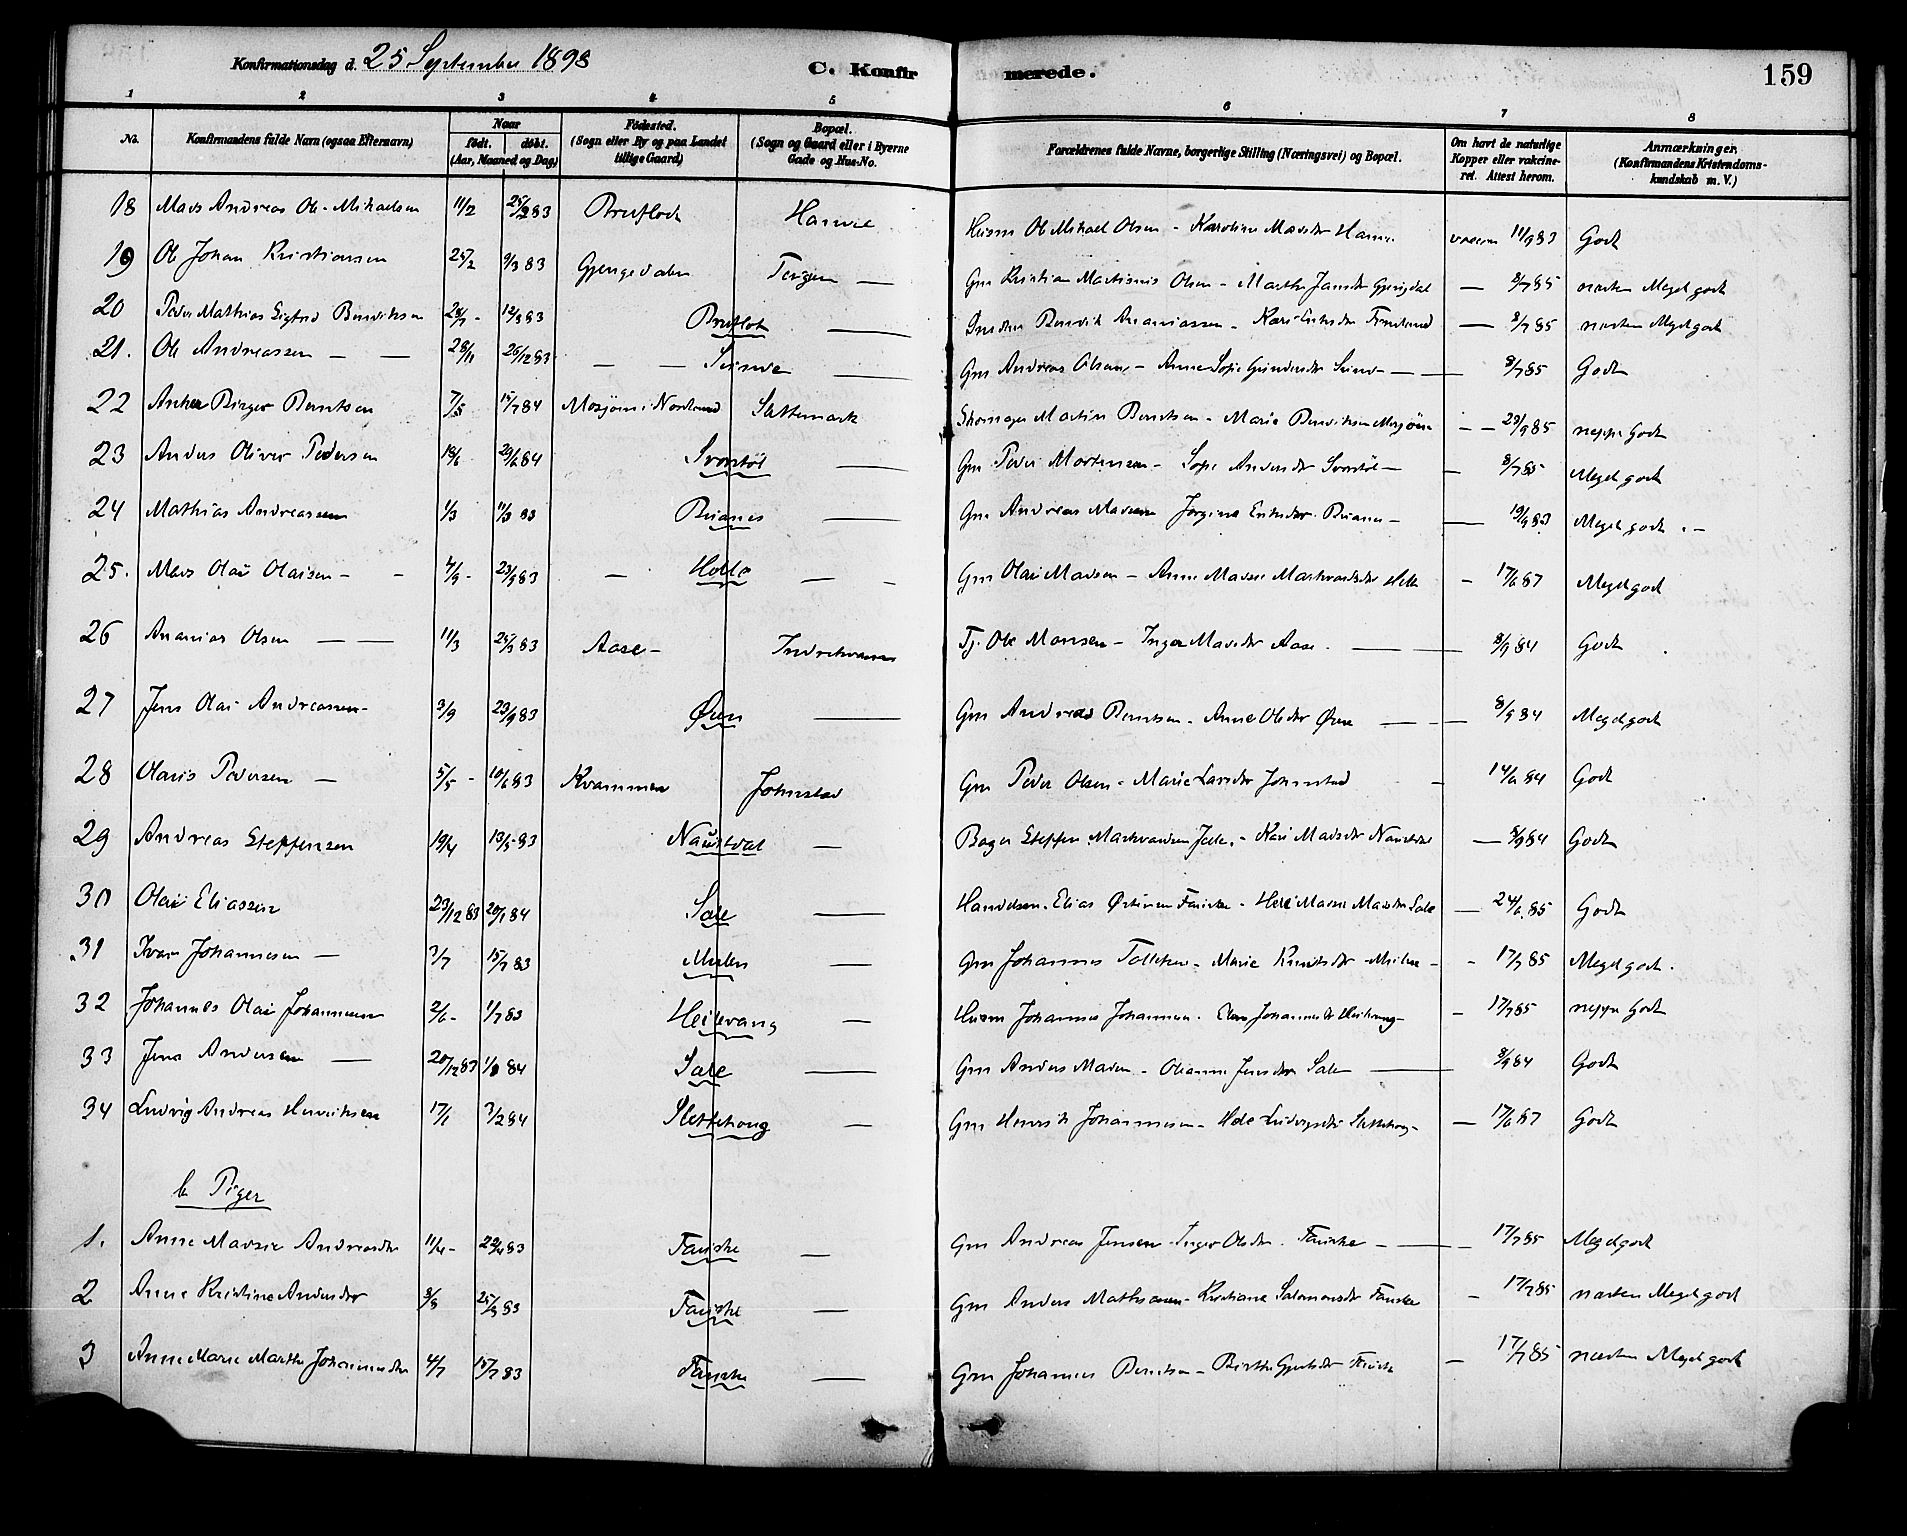 Konfirmationsdag d. 25 September 1898 C. Konfirmerede. 159
1 2 3 4 5 6 7 8
No. Konfirmandens fulde Navn (ogsaa Efternavn) Naar født. døbt. (Aar, Maaned og Dag) Fødested. (Sogn eller By og paa Landet tillige Gaard) Bopæl. (Sogn og Gaard eller i Byerne Gade og Hus-No. Forældrenes fulde Navne, borgerlige Stilling (Næringsvei) og Bopæl. Om havt de naturlige Kopper eller vakcineret. Attest herom. Anmærkninger. (Konfirmandens Kristendomskundskab m. V.)
18 Mads Andreas Ole-Mikalsen 11/2 25/2 83 Bruflodt Husm Ole Mikael Olsen - Karoline Madsdtr 11/9 83 Godt
19 Ole Johan Kristiansen 25/2 9/3 83 Gjengedalen Gm Kristian Olsen - Marthe Jansdtr 8/7 85 næsten Megetgodt
20 Peder Mathias Sigfrid Bendiksen 12/3 83 Bruflot — Bendik Ananiassen - Kari 8/7 85 næsten Megetgodt
21. Ole Andreassen — — 28/11 26/12 83 — — Gm Andreas Olsen - Anne Sofie 8/7 85 Godt
22 Anker Birger Berntsen 7/5 15/7 84 Mosjøen i Nordland Slettemark Skomager Martin Berntsen - Marie Bendiksen Mosjøen - - 29/9 85 neppe Godt
23 Anders Oliver Pedersen 19/6 29/6 84 Svortøl — Gm Peder Mortensen - Sofie Andersdtr Svortøl — 8/7 85 Megetgodt
24 Mathias Andreassen 1/3 11/3 83 — Gm Andreas Madsen Jørgine Eriksdtr — 19/9 83 Megetgodt . -
25. Mads Olai Olaisen - - 4/9 - 23/9 83 — — - Gm Olai Madsen - Anne Madsie Markvardsdtr - 17/6 87 Megetgodt
26 Ananias Olsen — — 11/3 25/3 83 Aase - Indrekvamme Tj. Ole Monsen - Inger Madsdtr Aase. — 8/9 84 Godt
27 Jens Olai Andreassen - 3/9 23/9 83 Øren — Gm Andreas Berntsen - Anne Olsdtr Øren — — 8/9 84 Megetgodt
28 Olaus Pedersen — 5/5 - 10/6 83 Kvammen Johnstad Gm Peder Olsen - Marie Larsdtr Johnstad - 14/6 84 Godt
29 Andreas Steffensen 19/4 13/5 83 Naustdal — Bager Steffen Markvardsen - Kari Madsdtr Naustdal — 8/9 84 Godt
30 Olai Eliassen 23/12 83 20/1 84 Sale — Handelsm. Elias - Madsie Madsdtr Sale — 24/6 85 Godt
31 Ivar Johannesen — 3/7 15/7 83 — Gm Johannes Tollefsen - Marie Knudsdtr - - 17/7 85 Megetgodt.
32 Johannes Olai Johannesen 2/6 - 1/7 83 Heilevang — Husm Johannes Johannesen. Johannesdtr Heilevang - 17/7 85 neppe Godt
33 Jens Andersen — 20/12 83 1/1 84 Sale — Gm Anders Madsen - Oleanna Jensdtr Sale — 8/9 84 Godt
34 Ludvig Andreas Henriksen 17/1 3/2 84 Slettehaug — Gm Henrik Johannesen - Ludvigsdtr Slettehaug - — 17/6 87 Godt
b Piger
1. Anne Madsie Andreasdtr 11/4 - 22/4 83 Fauske — Gm Andreas Jensen - Inger Olsdtr. Fauske — - 17/7 85 Megetgodt
2 Anne Kristine Andersdtr 25/3 83 Fauske — Gm Anders Mathiassen - Kristiane Salomonsdtr Fauske - 17/7 85 næsten Megetgodt
3 Anne Marie Marthe Johannesdtr 4/7 15/7 83 Fauske — Gm Johannes Berntsen - Birthe Fauske — 17/7 85 næsten Megetgodt